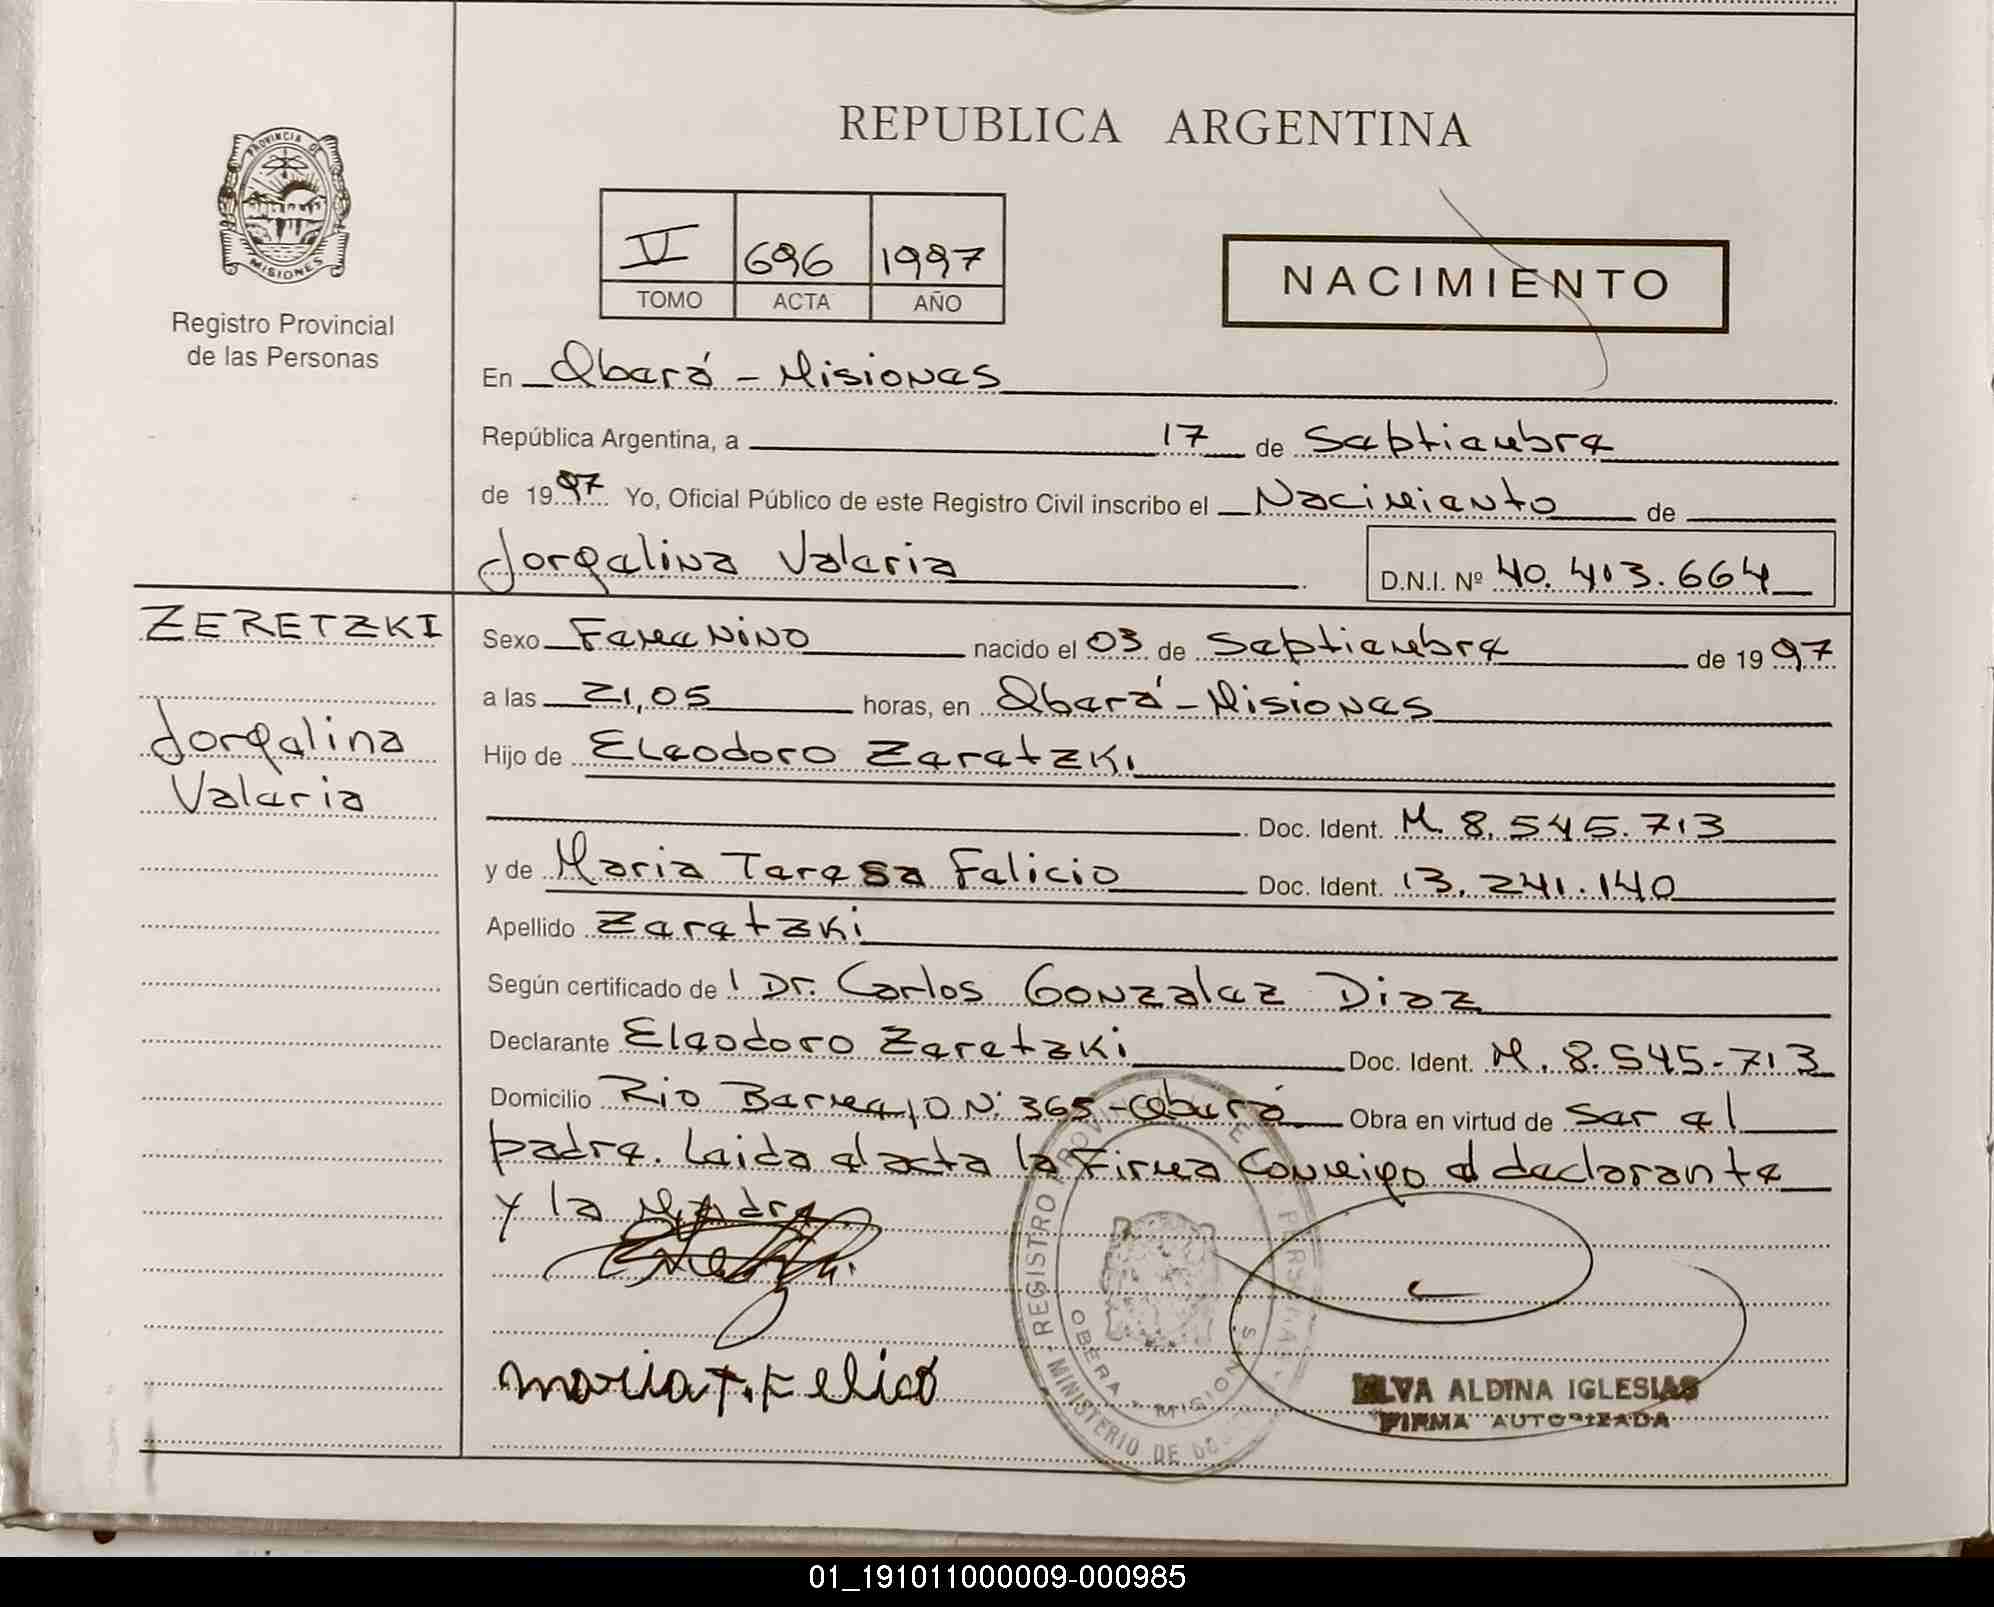 REPUBLICA ARGENTINA
PROVINCIA DE
MISIONES
Registro Provincial
de las Personas
V 696 1997
TOMO ACTA AÑO
NACIMIENTO
En Oberá - Misiones
República Argentina, a 17 de Septiembre
de 1997 Yo, Oficial Público de este Registro Civil inscribo el Nacimiento de
Jorgelina Valeria D.N.I. Nº 40.413.664
ZERETZKI
Jorgelina
Valeria
Sexo Femenino nacido el 03 de Septiembre de 1997
a las 21,05 horas, en Oberá - Misiones
Hijo de Eleodoro Zeretzki
Doc. Ident. M. 8.545.713
y de Maria Teresa Felicio Doc. Ident. 13.241.140
Apellido Zeretzki
Según certificado de l Dr. Carlos Gonzalez Diaz
Declarante Eleodoro Zeretzki Doc. Ident. M. 8.545.713
Domicilio Rio Bermejo N° 365 - Oberá Obra en virtud de ser el
padre. Leida el acta la Firma Conmigo el declarante
y la Madre
REGISTRO PROVINCIAL DE LAS PERSONAS
OBERA - MISIONES
MINISTERIO DE GO
Maria T. Felicio
ELVA ALDINA IGLESIAS
FIRMA AUTORIZADA
01_191011000009-000985